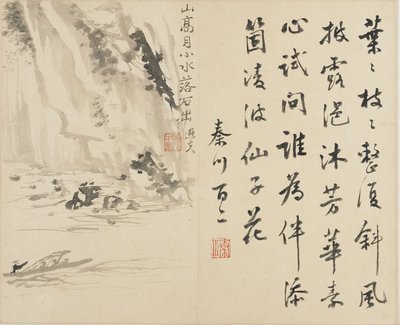 葉〻枝〻整復斜風
披露浥沐芳華素
心試問誰為伴添
箇凌波仙子花
秦川百二
山高月小水落石出